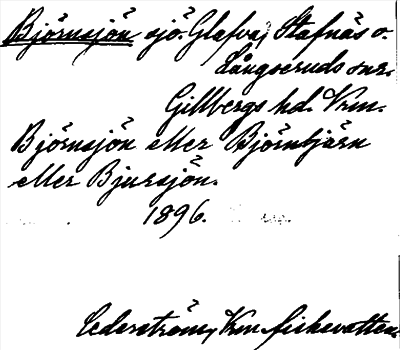 Björnsjön sjö. Glafva, Stafnäs o.
Långseruds snr.
Gillbergs hd. Vrm.
Björnsjön eller Björntjärn
eller Bjursjön.
1896.
Cederström, Vrm fiskevatten.